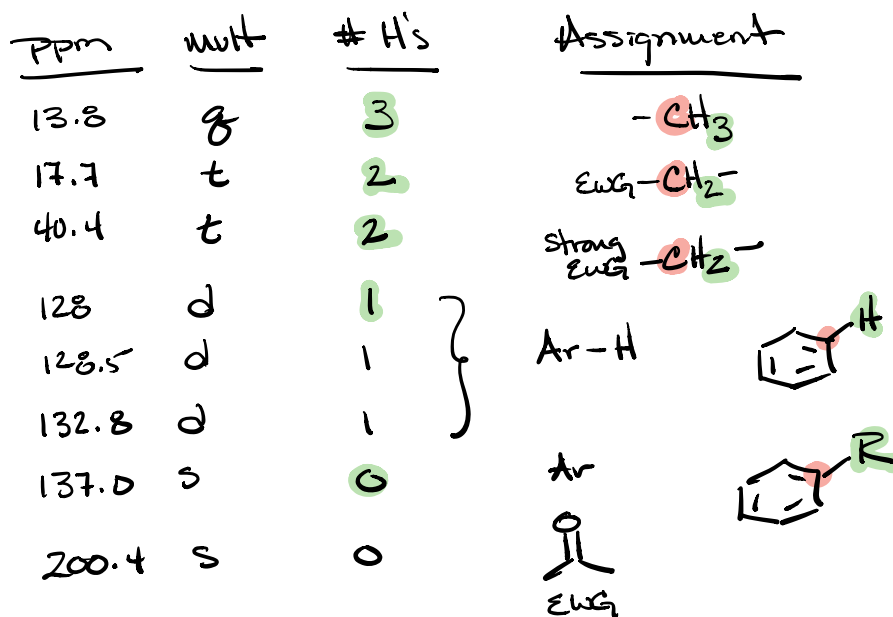 ppm mult # H's Assignment
13.8 q 3 -CH3
17.7 t 2 EWG-CH2-
40.4 t 2 strong EWG-CH2-
128 d 1 H
128.5 d 1 Ar-H
132.8 d 1
R
137.0 s 0 Ar
O
200.4 s 0
EWG